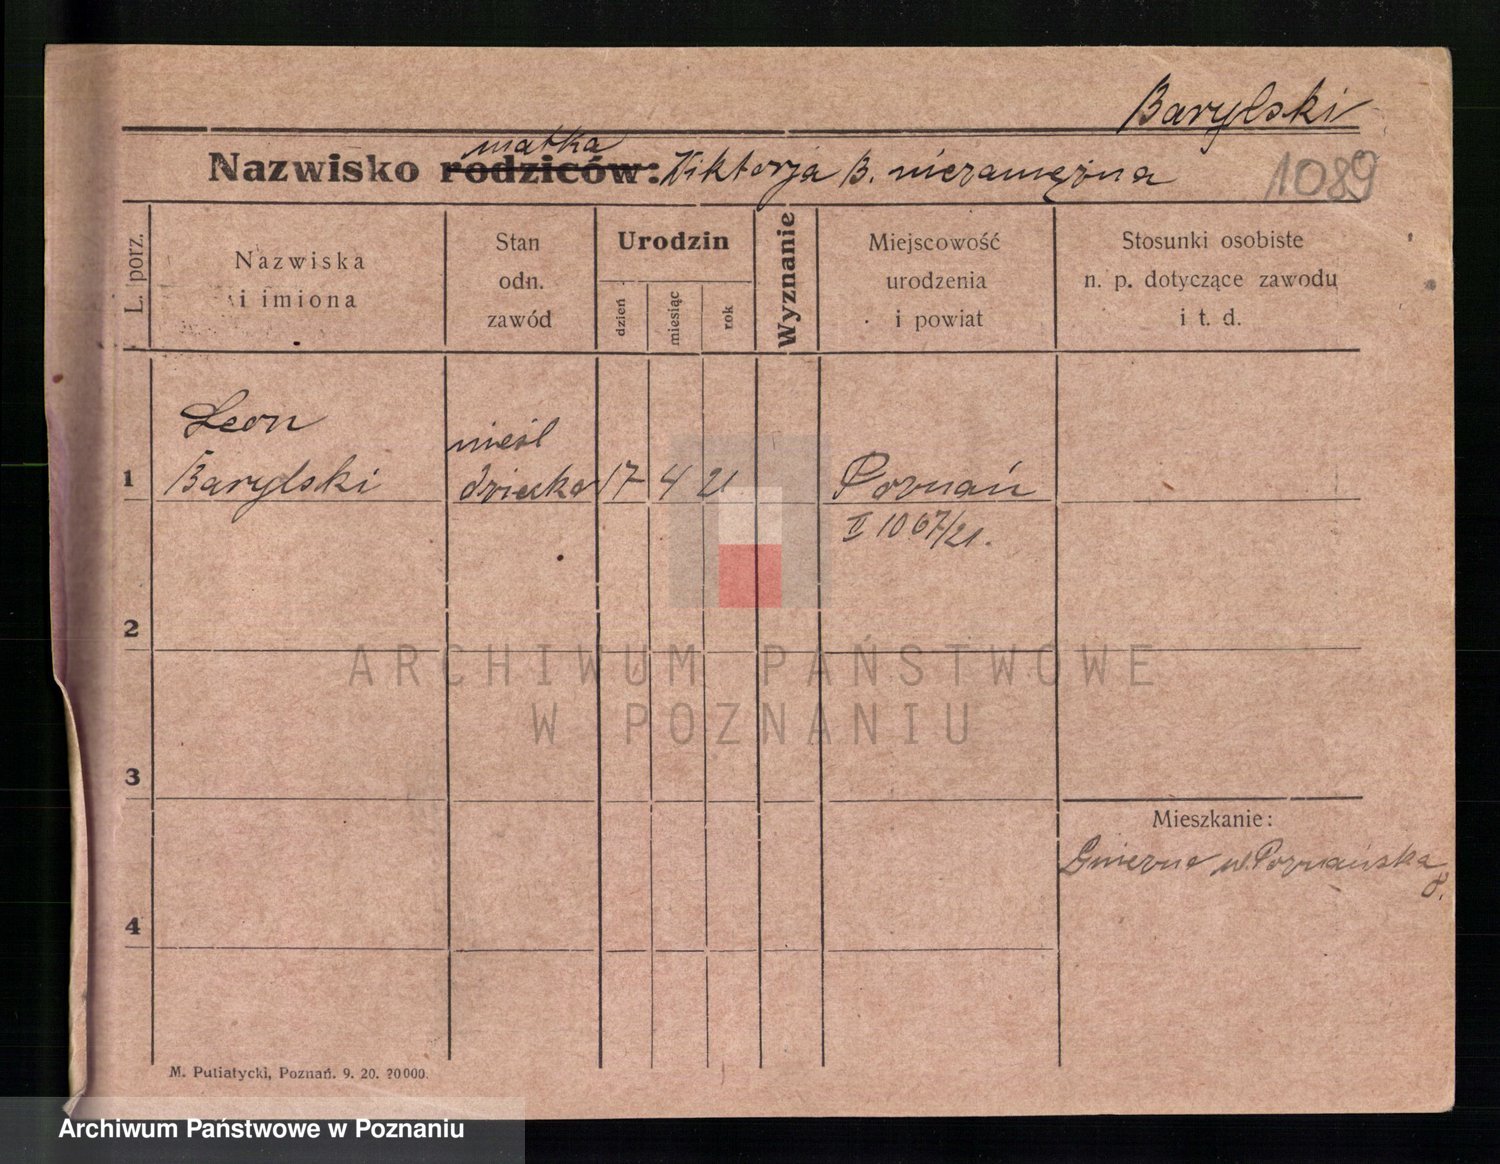 Barylski
matka
Nazwisko rodziców: Wiktorja B. niezamężna
1089
L. porz.
Nazwiska
i imiona
Stan
odn.
zawód
Urodzin
dzień
miesiąc
rok
Wyznanie
Miejscowość
urodzenia
i powiat
Stosunki osobiste
n. p. dotyczące zawodu
i t. d.
1
Leon
Barylski
nieśl
dziecko
17
4
21
Poznań
II 1067/21.
2
ARCHIWUM PAŃSTWOWE
W POZNANIU
3
Mieszkanie:
Gniezno ul. Poznańska
8.
4
M. Putiatycki, Poznań. 9. 20. 20000.
Archiwum Państwowe w Poznaniu